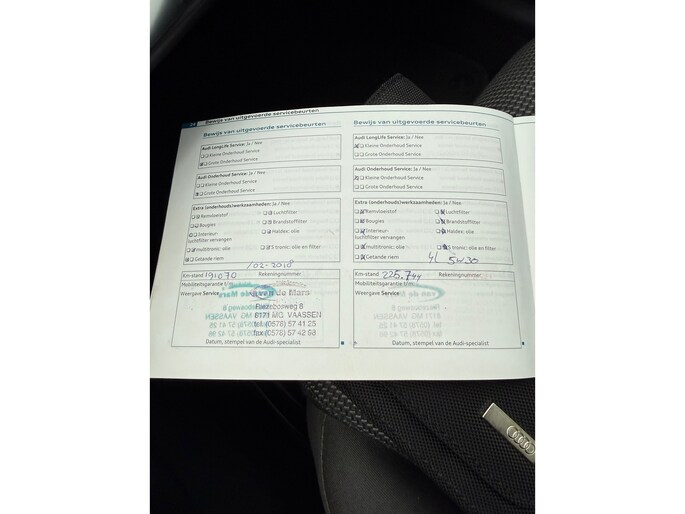 24 Bewijs van uitgevoerde servicebeurten
Bewijs van uitgevoerde servicebeurten
Audi LongLife Service: Ja / Nee
Kleine Onderhoud Service
Grote Onderhoud Service
Audi Onderhoud Service: Ja / Nee
Kleine Onderhoud Service
Grote Onderhoud Service
Extra (onderhouds)werkzaamheden: Ja / Nee
Remvloeistof Luchtfilter
Bougies Brandstoffilter
Interieur- Haldex: olie
luchtfilter vervangen
multitronic: olie S tronic: olie en filter
Getande riem
/02-2018
Km-stand 191070 Rekeningnummer
Mobiliteitsgarantie t/m
Weergave Service
van de Mars
Fliezebosweg 8
8171 MG VAASSEN
tel. (0578) 57 41 25
fax (0578) 57 42 98
Datum, stempel van de Audi-specialist
Bewijs van uitgevoerde servicebeurten
Audi LongLife Service: Ja / Nee
Kleine Onderhoud Service
Grote Onderhoud Service
Audi Onderhoud Service: Ja / Nee
Kleine Onderhoud Service
Grote Onderhoud Service
Extra (onderhouds)werkzaamheden: Ja / Nee
Remvloeistof Luchtfilter
Bougies Brandstoffilter
Interieur- Haldex: olie
luchtfilter vervangen
multitronic: olie S tronic: olie en filter
Getande riem 4L 5w30
Km-stand 225.744 Rekeningnummer
Mobiliteitsgarantie t/m
Weergave Service
Datum, stempel van de Audi-specialist